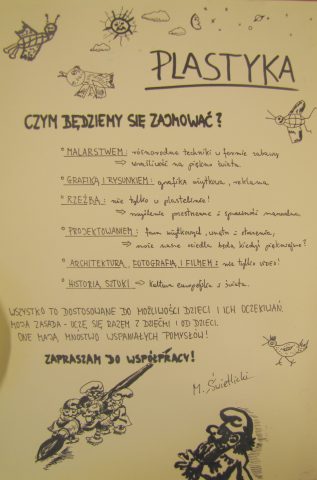 PLASTYKA
CZYM BĘDZIEMY SIĘ ZAJMOWAĆ?
° MALARSTWEM: różnorodne techniki w formie zabawy
⇒ wrażliwość na piękno świata.
° GRAFIKĄ I RYSUNKIEM: grafika użytkowa, reklama.
° RZEŹBĄ: nie tylko w plastelinie!
⇒ myślenie przestrzenne i sprawność manualna
° PROJEKTOWANIEM: form użytkowych, wnętrz i otoczenia,
⇒ może nasze osiedla będą kiedyś piękniejsze?
° ARCHITEKTURĄ, FOTOGRAFIĄ I FILMEM: nie tylko VIDEO!
° HISTORIĄ SZTUKI ⇒ kultura europejska i świata.
WSZYSTKO TO DOSTOSOWANE DO MOŻLIWOŚCI DZIECI I ICH OCZEKIWAŃ.
MOJA ZASADA - UCZĘ SIĘ RAZEM Z DZIEĆMI I OD DZIECI.
ONE MAJĄ MNÓSTWO WSPANIAŁYCH POMYSŁÓW!
ZAPRASZAM DO WSPÓŁPRACY!
M. Świetlicki